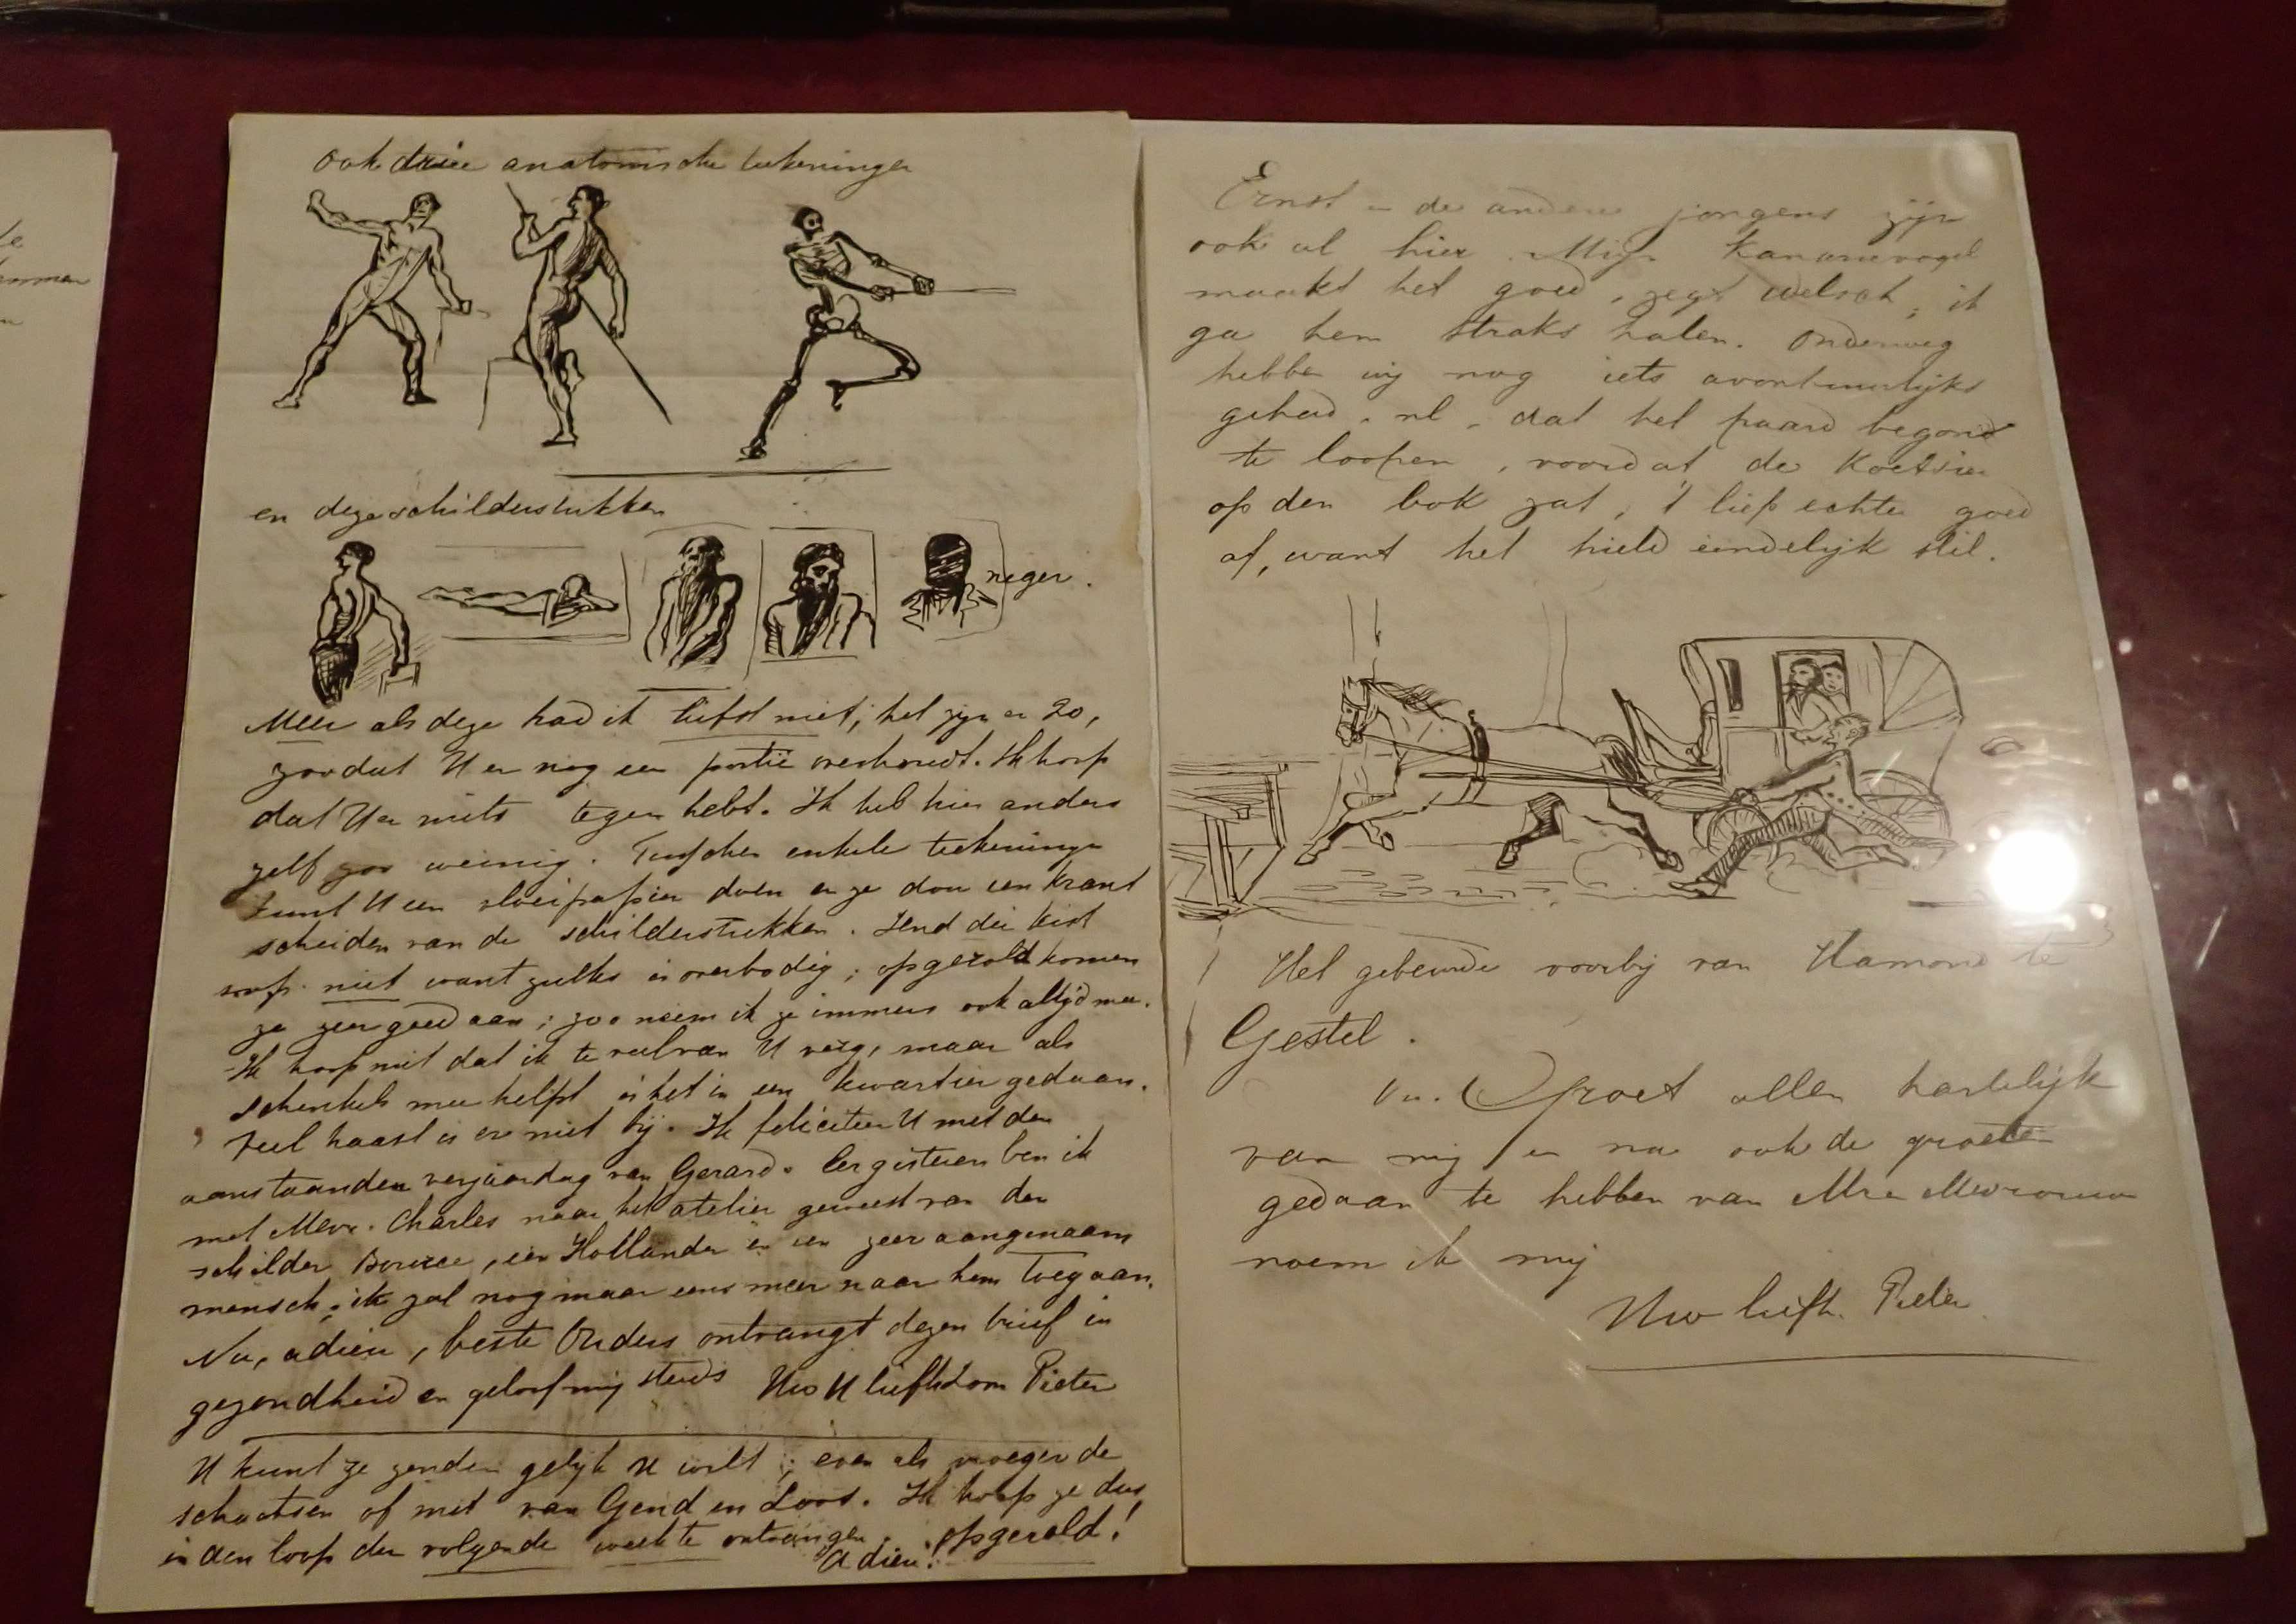 ook drie anatomische teekeningen
en deze schilderstukken
neger.
Meer als deze had ik liefst niet; het zijn er 20,
zoodat U er nog een portie overhoudt. Ik hoop
dat U er niets tegen hebt. Ik heb hier anders
zelf zoo weinig. Tusschen enkele teekeningen
kunt U een vloeipapier doen en ze dan een krant
scheiden van de schilderstukken. Zend die kist
niet want zulks is overbodig; opgerold komen
ze zeer goed aan; zoo neem ik ze immers ook altijd mee.
Ik hoop niet dat ik te veel van U verg, maar als
Schenkels mee helpt is het in een kwartier gedaan.
Veel haast is er niet bij. Ik feliciteer U met den
aanstaanden verjaardag van Gerard. Eergisteren ben ik
met Mevr. Charles naar het atelier geweest van den
schilder een Hollander is een zeer aangenaam
mensch; ik zal nog maar eens meer naar hem toegaan.
Nu, adieu, beste Ouders ontvangt dezen brief in
gezondheid en geloof mij steeds Uw U liefh. zoon Pieter
U kunt ze zenden gelijk U wilt; even als vroeger de
schaatsen of met van Gend en Loos. Ik hoop ze dus
in den loop der volgende week te ontvangen. opgerold!
Adieu!
Ernst en de andere jongens zijn
ook al hier. Mijn kanarievogel
maakt het goed, zegt ik
ga hem straks halen. Onderweg
hebben wij nog iets avontuurlijks
gehad, nl. dat het paard begond
te loopen, voordat de Koetsier
op den bok zat, 't liep echter goed
af, want het hield eindelijk stil.
Het gebeurde voorbij van Hamond te
Gestel.
Nu. Groet allen hartelijk
van mij en na ook de groeten
gedaan te hebben van Mr en Mevrouw
noem ik mij
Uw liefh. Pieter